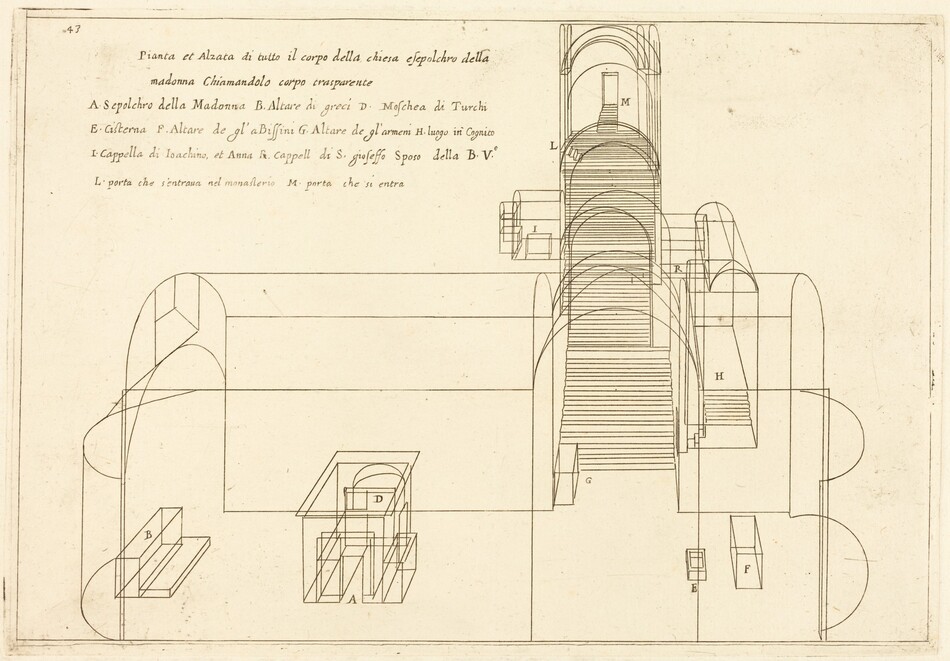 43
Pianta et Alzata di tutto il corpo della chiesa esepolchro della
madonna Chiamandolo corpo trasparente
A. Sepolchro della Madonna B. Altare di greci D. Moschea di Turchi
E. Cisterna F. Altare de gl'aBissini G. Altare de gl'armeni H. luogo in Cognito
I. Cappella di Ioachino, et Anna R. Cappell di S. gioseffo Sposo della B. V.e
L. porta che s'entraua nel monasterio M. porta che si entra
M
L
I
R
H
G
D
B
A
E
F